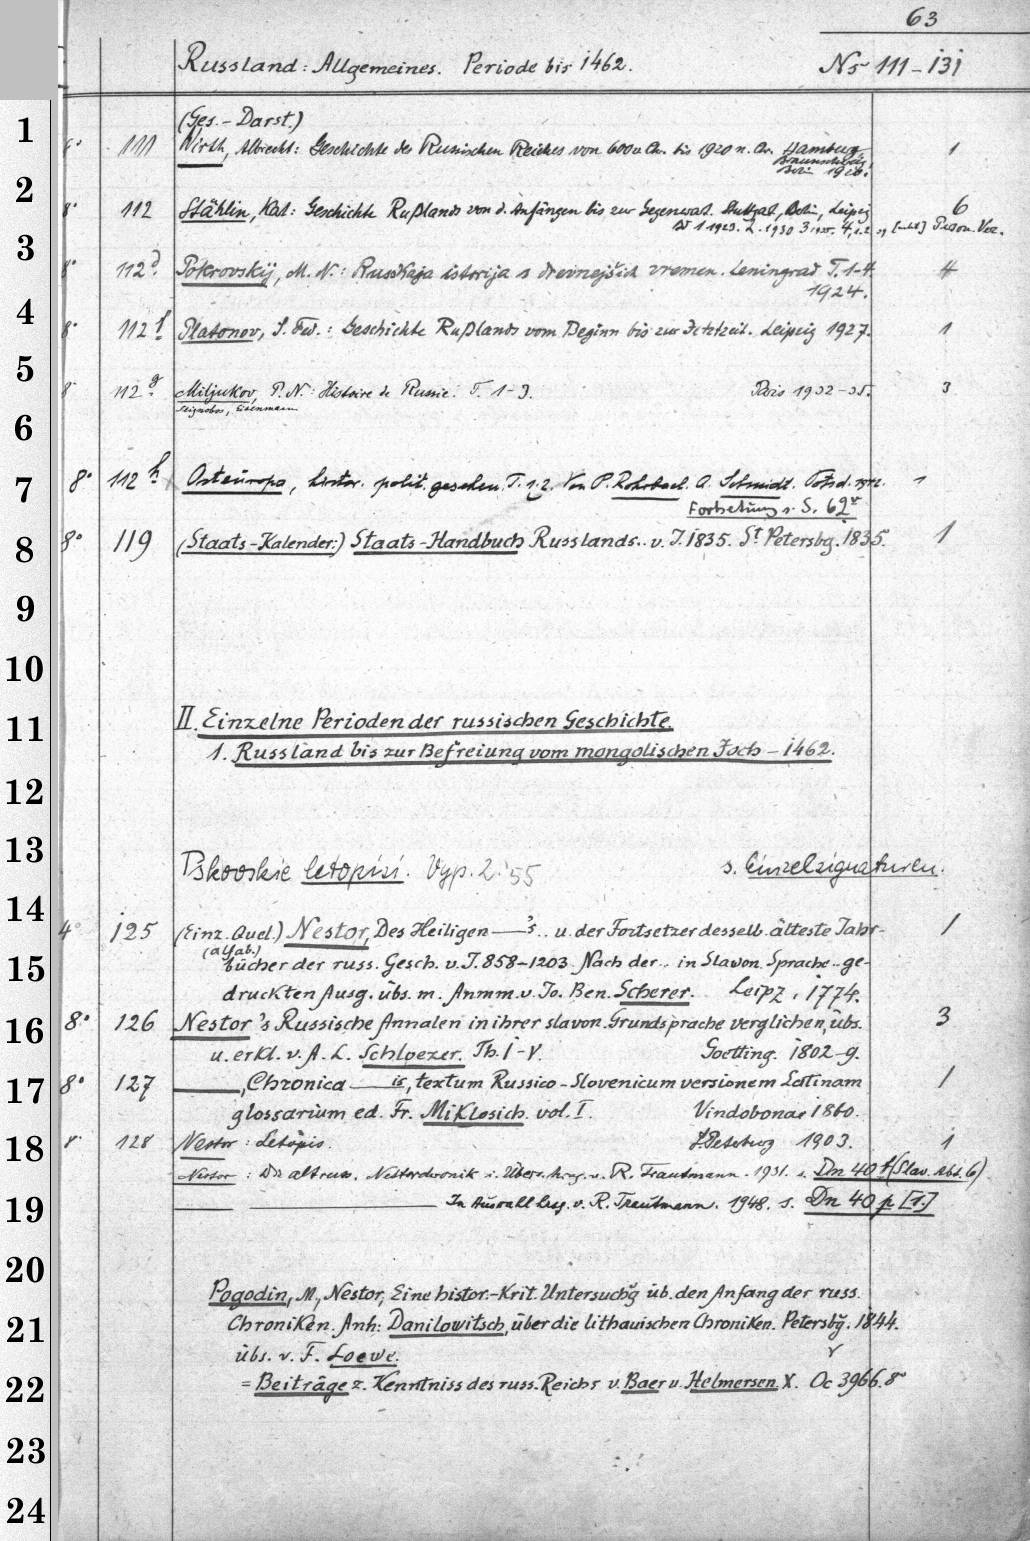 63
Russland: Allgemeines. Periode bis 1462. No 111-131
(Ges.-Darst.)
1
8° 111 Wirth, Albrecht: Geschichte des Russischen Reiches von 600 v. Chr. bis 1920 n. Chr. Hamburg 1
Braunschweig,
Berlin 1920.
2
8° 112 Stählin, Karl: Geschichte Rußlands von d. Anfängen bis zur Gegenwart. Stuttgart, Berlin, Leipzig 6
Bd 1 1923. 2. 1930 3 1935. 4,1.2
3
8° 112d. Pokrovskij, M. N.: Russkaja istorija s drevnejšich vremen. Leningrad T. 1-4. 4
1924.
4
8° 112f. Platonov, S. Fed.: Geschichte Rußlands vom Beginn bis zur Jetztzeit. Leipzig 1927. 1
5
8° 112g. Miljukov, P. N.: Histoire de Russie. T. 1-3. Paris 1932-35. 3
Seignobos, Eisenmann
6
7
8° 112h. Osteuropa, histor. polit. gesehen. T. 1.2. Von P. Rohrbach. A. Schmidt. Potsd. 1942. 1
Fortsetzung s. S. 62v
8
8° 119 (Staats-Kalender:) Staats-Handbuch Russlands.. v. J. 1835. St Petersbg. 1835. 1
9
10
11
II. Einzelne Perioden der russischen Geschichte.
1. Russland bis zur Befreiung vom mongolischen Joch - 1462.
12
13
Pskovskie letopisi. Vyp. 2.'55 s. Einzelsignaturen.
14
4° 125 (Einz. Quel.) Nestor, Des Heiligen —'s.. u. der Fortsetzer desselb. älteste Jahr- 1
(altab.)
15
bücher der russ. Gesch. v. J. 858-1203. Nach der.. in Slavon. Sprache.. ge-
druckten Ausg. übs. m. Anmm. v. Jo. Ben. Scherer. Leipz. 1774.
16
8° 126 Nestor's Russische Annalen in ihrer slavon. Grundsprache verglichen, übs. 3
u. erkl. v. A. L. Schloezer. Th. I-V. Goetting. 1802-9.
17
8° 127 —, Chronica — is, textum Russico-Slovenicum versionem Latinam 1
glossarium ed. Fr. Miklosich. vol. I. Vindobonae 1860.
18
8° 128 Nestor: Letopis. S. Petersburg 1903. 1
Nestor: Die altruss. Nestorchronik i. Übers. hrsg. v. R. Trautmann. 1931. s. Dn 40 f (Slav. Abt. 6)
19
— — In Auswahl hrsg. v. R. Trautmann. 1948. s. Dn 40 p [1.]
20
Pogodin, M., Nestor, Eine histor.-krit. Untersuchg üb. den Anfang der russ.
21
Chroniken. Anh: Danilowitsch, über die lithauischen Chroniken. Petersbg. 1844.
übs. v. F. Loewe.
22
= Beiträge z. Kenntniss des russ. Reichs v. Baer u. Helmersen X. Oc 3966. 8°
23
24